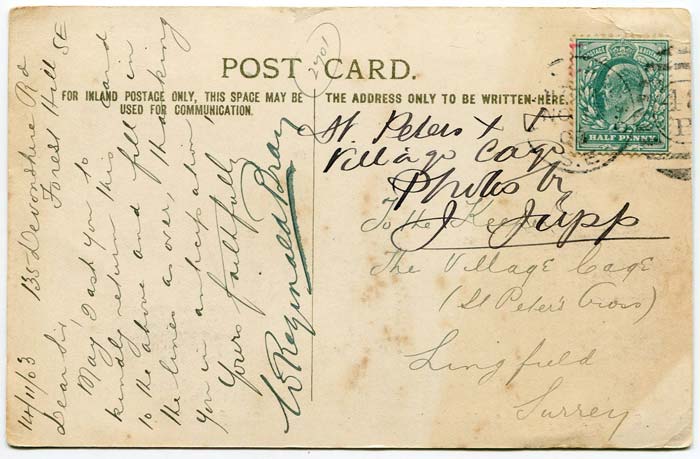 2701
POST CARD.
FOR INLAND POSTAGE ONLY, THIS SPACE MAY BE
USED FOR COMMUNICATION.
THE ADDRESS ONLY TO BE WRITTEN HERE.
POSTAGE
HALF PENNY
135 Devonshire Rd
Forest Hill SE
14/11/03
Dear Sir,
May I ask you to
kindly return this card
to the above and fill in
the lines as over, thanking
you in anticipation,
Yours faithfully
W Reginald Bray
St Peters X +
Village Cage
Photos by
J Jupp
To the
The Village Cage
(St Peter's Cross)
Lingfield
Surrey